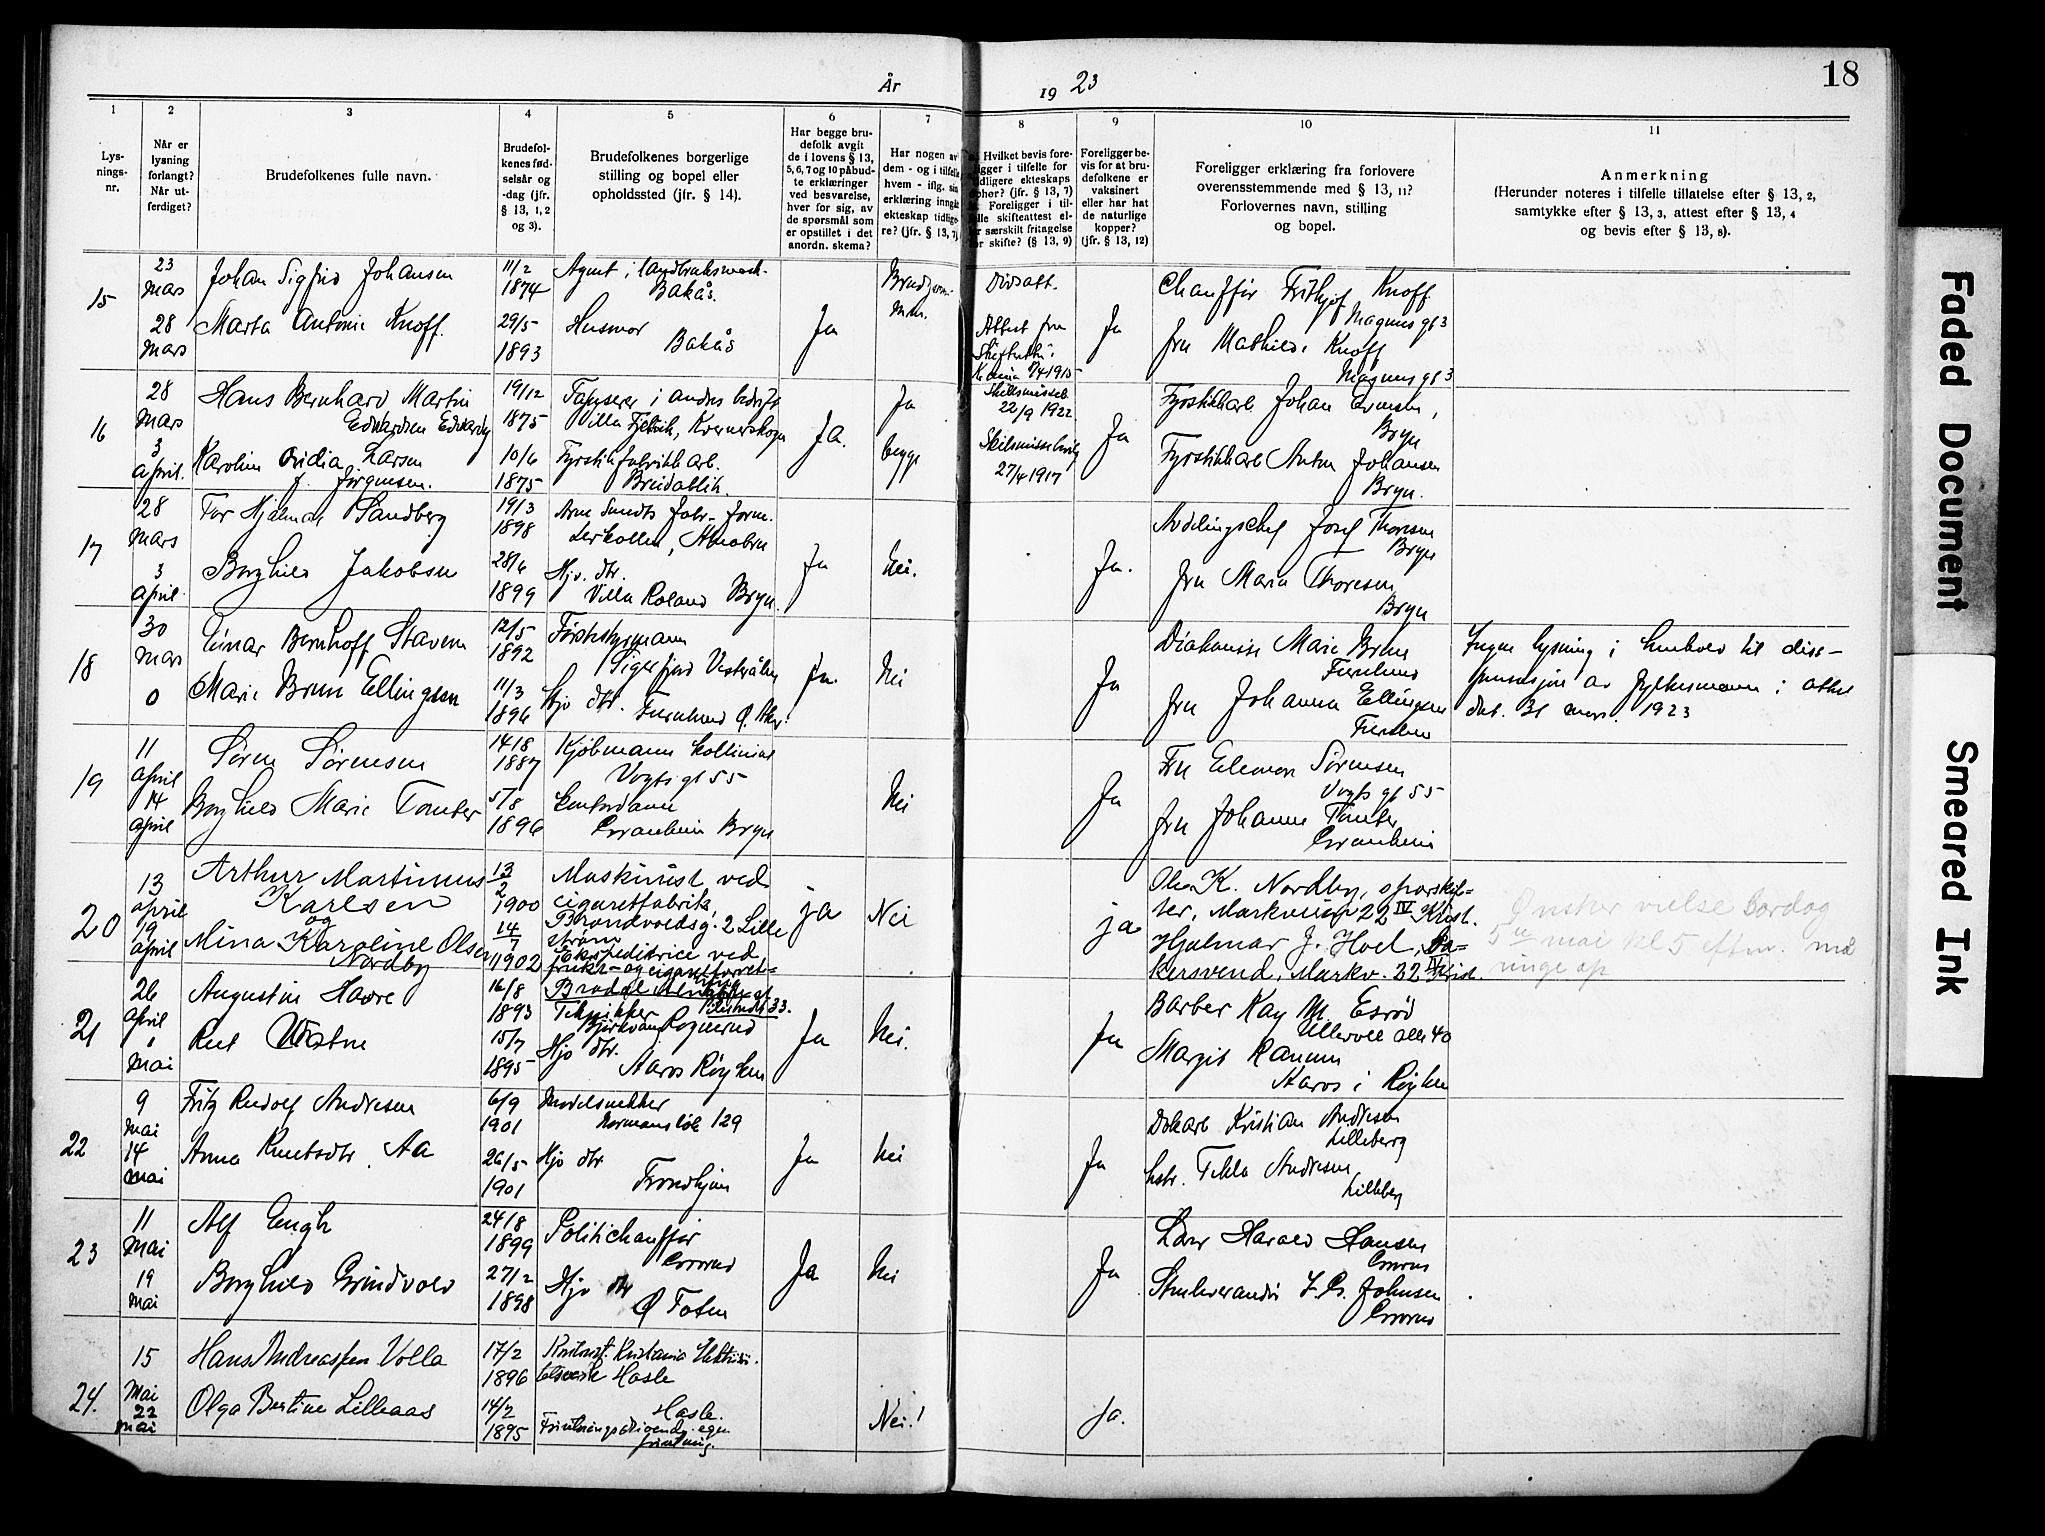 År 1923
18
1
2
3
4
5
6
7
8
9
10
11
Lys-
nings-
nr.
Når er
lysning
forlangt?
Når ut-
ferdiget?
Brudefolkenes fulle navn.
Brudefol-
kenes fød-
selsår og
-dag (jfr.
§ 13, 1, 2
og 3).
Brudefolkenes borgerlige
stilling og bopel eller
opholdssted (jfr. § 14).
Har begge bru-
defolk avgit
de i lovens § 13,
5, 6, 7 og 10 påbud-
te erklæringer
ved besvarelse,
hver for sig, av
de spørsmål som
er opstillet i det
anordn. skema?
Har nogen av
dem - og i tilfelle
hvem - iflg. sin
erklæring inngåt
ekteskap tidlige-
re? (jfr. § 13, 7)
Hvilket bevis fore-
ligger i tilfelle for
tidligere ekteskaps
ophør? (jfr. § 13, 7)
Foreligger i til-
felle skifteattest el-
ler særskilt fritagelse
for skifte? (§ 13, 9)
Foreligger be-
vis for at bru-
defolkene er
vaksinert
eller har hat
de naturlige
kopper?
(jfr. § 13, 12)
Foreligger erklæring fra forlovere
overensstemmende med § 13, 11?
Forlovernes navn, stilling
og bopel.
Anmerkning
(Herunder noteres i tilfelle tillatelse efter § 13, 2,
samtykke efter § 13, 3, attest efter § 13, 4
og bevis efter § 13, 8).
15
23
mars
28
mars
Johan Sigfrid Johansen
Marta Antonie Knoff
11/2
1874
29/5
1893
Agent i landbruksmask.
Bakås.
Husmor
Bakås
Ja
Dødsatt.
Attest fra
Ja
Chauffør Frithjof Knoff
Magnus gt 3
fru Mathilde Knoff
Magnus gt 3
16
28
mars
3
april.
Hans Bernhard Martin
Karoline Ovidia Larsen
f. Jørgensen.
19/12
1875
10/6
1875
Tapserer i andres bedrift
Fyrstikfabrikkarb.
Breidablik
Ja.
Ja
begge
22/9 1922
27/4 1917
Ja
Fyrstikkarb Johan Evensen,
Bryn
Fyrstikkarb Anton Johansen
Bryn.
17
28
mars
3
april.
Tor Hjalmar Sandberg
Borghild Jakobsen
19/3
1898
28/6
1899
Hjv. dtr.
Villa Roland Bryn.
Ja
Nei.
Ja.
Avdelingschef Josef Thoresen
Bryn
fru Maria Thoresen
Bryn
18
30
mars
0
Einar Bernhoff Stavem
Marie Brun Ellingsen
12/5
1892
11/3
1896
Sigerfjord Vesterålen
Hjv dtr. Furulund Ø. Aker.
Ja
Nei
Ja
Diakonisse Marie Brun
Furulund
fru Johanna Ellingsen
Ingen lysning i henhold til dis-
pensasjon av fylkesmannen i attest
dat. 31 mars 1923
19
11
april
14
april
Søren Sørensen
Borghild Marie Tomter
14/8
1887
5/8
1896
Kjøbmann
Vogts gt 55
Kontordame
Granheim Bryn
Nei
Ja
Fru Eleonora Sørensen
Vogts gt 55
fru Johanne Tomter
Granheim
20
13
april
19
april
Arthur Martinus
Karlsen
og
Mina Karoline Olsen
Nordby
13
2
1900
14
7
1902
Maskinist ved
cigaretfabrik,
Brandvoldsg. 2 Lille
strøm
Ekspeditrice ved
frukt- og cigarforret-
ja
Nei
ja
Ole K. Nordby, sporskif-
ter, Markveien 22 IV Krist.
Hjalmar J. Hoel, Ba-
kersvend, Markv. 22 IV Krist.
Ønsker vielse Lørdag
5te mai kl 5 eftm. må
ringe op
21
26
april
1
mai
Augustin Havre
Rut
16/8
1893
15/7
1895
Tekniker
Hjv dtr.
Aaros Røyken
Ja
Nei.
Ja
Barber Kay M. Esrød
Ullevold alle 40
Margit Ranum
Aaros i Røyken
22
9
mai
14
mai
Fritz Rudolf Andresen
Anna Knutsdtr. Aa
6/9
1901
26/5
1901
Modelsnekker
Normannsløk 129
Hjv dtr
Trondhjem
Ja
Nei
Ja
Kristian Andresen
Lilleberg
hstr. Tekla Andresen
Lilleberg
23
11
mai
19
mai
Alf Engh
Borghild Grindvold
24/8
1899
27/2
1898
Politichauffør
Grorud
Hjv dtr
Ø Toten
Ja
Nei
Ja
Lars Harald Hansen
Grorud
Johnsen
Grorud
24.
15
Mai
22
mai
Hans Andreassen Volla
Olga Bertine Lilleaas
17/2
1896
14/2
1895
Kristiania Elektrisi-
tetsverk Hasle
Hasle.
Forretningsdrivende egen
forretning.
Nei!
Ja.
Faded Document
Smeared Ink